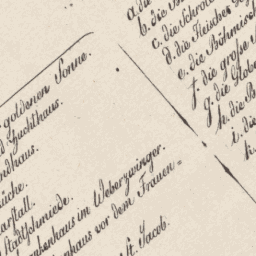 goldenen Sonne.
Zuchthaus.
ndhaus.
üche.
arstall.
Stadtschmiede.
ankenhaus im Weberzwinger.
enhaus vor dem Frauen=
St. Jacob.
a. die
b. die
c. die Schrot
d. die Fleischer
e. die Böhmisch
f. die große
g. die Globe
h. die B
i. die
k.